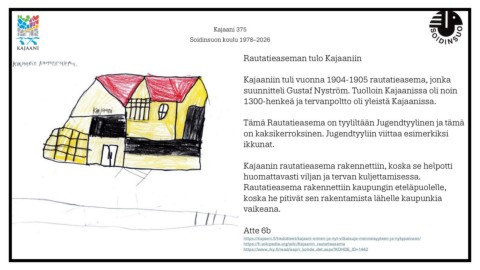 Kajaani 375
Soidinsuon koulu 1978-2026
KAJAANI
SOIDINSUO
Rautatieaseman tulo Kajaaniin
Kajaaniin tuli vuonna 1904-1905 rautatieasema, jonka
suunnitteli Gustaf Nyström. Tuolloin Kajaanissa oli noin
1300-henkeä ja tervanpoltto oli yleistä Kajaanissa.
Tämä Rautatieasema on tyyliltään Jugendtyylinen ja tämä
on kaksikerroksinen. Jugendtyyliin viittaa esimerkiksi
ikkunat.
Kajaanin rautatieasema rakennettiin, koska se helpotti
huomattavasti viljan ja tervan kuljettamisessa.
Rautatieasema rakennettiin kaupungin eteläpuolelle,
koska he pitivät sen rakentamista lähelle kaupunkia
vaikeana.
Atte 6b